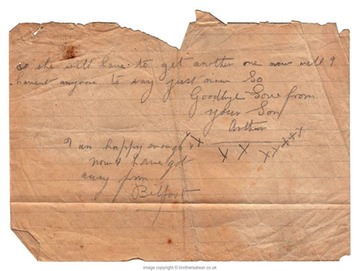 so she will have to get another one now well I
havent anyone to say just now so
Goodbye Love from
your Son
Arthur
I am happy enough x x x x x x x x
now I have got
away from
Belfast
image copyright © brothersatwar.co.uk